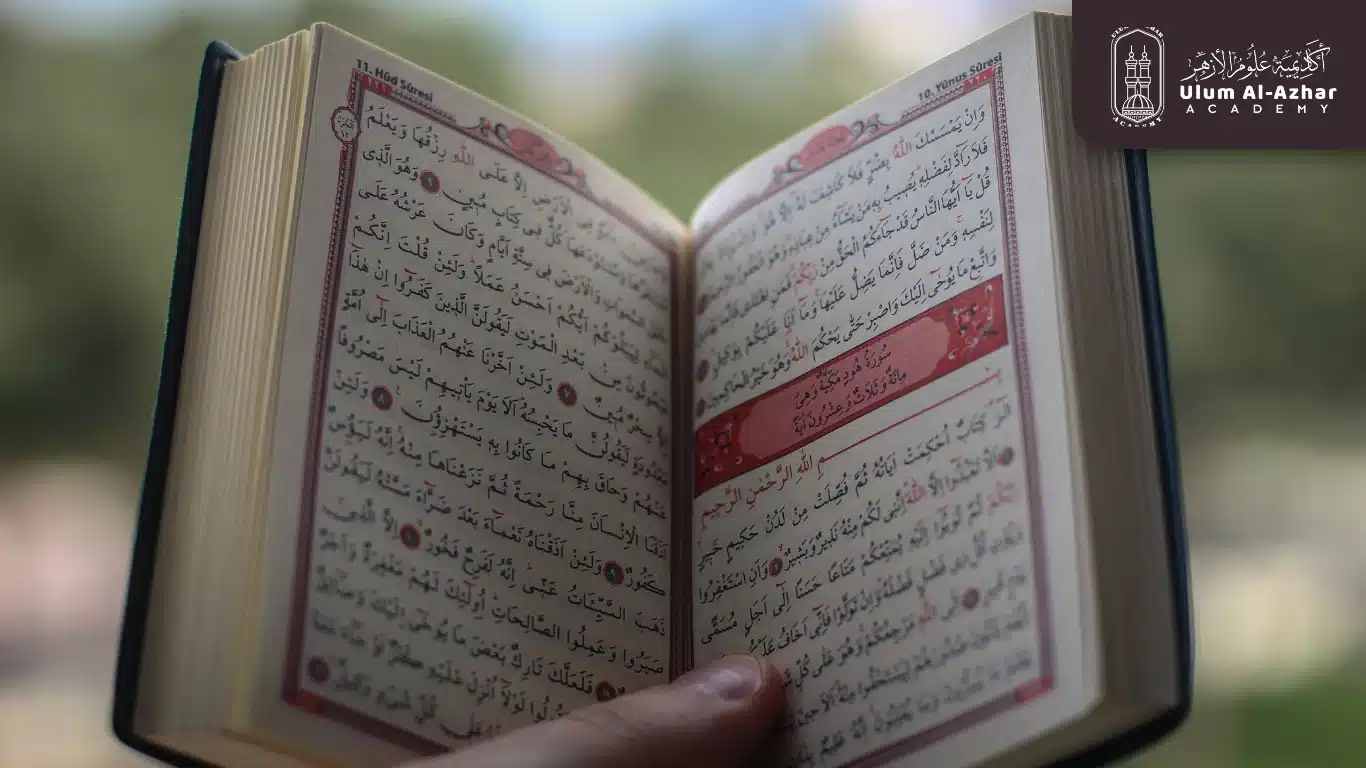 أكاديمية علوم الأزهر
Ulum Al-Azhar
ACADEMY
10. Yûnus Sûresi
وَاِنْ يَمْسَسْكَ اللّٰهُ بِضُرٍّ فَلَا كَاشِفَ لَهُ اِلَّا هُوَ
فَلَا رَادَّ لِفَضْلِهِ يُصِيبُ بِهِ مَنْ يَشَاءُ مِنْ عِبَادِهِ وَهُوَ الْغَفُورُ
قُلْ يَا اَيُّهَا النَّاسُ قَدْ جَاءَكُمُ الْحَقُّ مِنْ رَبِّكُمْ فَمَنِ اهْتَدٰى فَاِنَّمَا
لِنَفْسِهِ وَمَنْ ضَلَّ فَاِنَّمَا يَضِلُّ عَلَيْهَا وَمَا اَنَا عَلَيْكُمْ بِوَكِيلٍ
وَاتَّبِعْ مَا يُوحٰى اِلَيْكَ وَاصْبِرْ حَتّٰى يَحْكُمَ اللّٰهُ وَهُوَ خَيْرُ الْحَاكِمِينَ
سُورَةُ هُودٍ مَكِّيَّةٌ وَهِيَ
مِائَةٌ وَثَلَاثٌ وَعِشْرُونَ اٰيَةً
بِسْمِ اللّٰهِ الرَّحْمٰنِ الرَّحِيمِ
الٓرٰ كِتَابٌ اُحْكِمَتْ اٰيَاتُهُ ثُمَّ فُصِّلَتْ مِنْ لَدُنْ حَكِيمٍ خَبِيرٍ
اَلَّا تَعْبُدُوا اِلَّا اللّٰهَ اِنَّنِي لَكُمْ مِنْهُ نَذِيرٌ وَبَشِيرٌ ٢ وَاَنِ اسْتَغْفِرُوا
رَبَّكُمْ ثُمَّ تُوبُوا اِلَيْهِ يُمَتِّعْكُمْ مَتَاعًا حَسَنًا اِلٰى اَجَلٍ مُسَمًّى
كُلَّ ذِي فَضْلٍ فَضْلَهُ وَاِنْ تَوَلَّوْا فَاِنِّي اَخَافُ
اِلَى اللّٰهِ مَرْجِعُكُمْ وَهُوَ عَلٰى كُلِّ
11. Hûd Sûresi
الْاَرْضِ اِلَّا عَلَى اللّٰهِ رِزْقُهَا وَيَعْلَمُ
كُلٌّ فِي كِتَابٍ مُبِينٍ ٦ وَهُوَ الَّذِي
السَّمٰوَاتِ وَالْاَرْضَ فِي سِتَّةِ اَيَّامٍ وَكَانَ عَرْشُهُ عَلَى
لِيَبْلُوَكُمْ اَيُّكُمْ اَحْسَنُ عَمَلًا وَلَئِنْ قُلْتَ اِنَّكُمْ
مَبْعُوثُونَ مِنْ بَعْدِ الْمَوْتِ لَيَقُولَنَّ الَّذِينَ كَفَرُوا اِنْ هٰذَا
اِلَّا سِحْرٌ مُبِينٌ ٧ وَلَئِنْ اَخَّرْنَا عَنْهُمُ الْعَذَابَ اِلٰى اُمَّةٍ
مَعْدُودَةٍ لَيَقُولُنَّ مَا يَحْبِسُهُ اَلَا يَوْمَ يَأْتِيهِمْ لَيْسَ مَصْرُوفًا
عَنْهُمْ وَحَاقَ بِهِمْ مَا كَانُوا بِهِ يَسْتَهْزِؤُنَ ٨ وَلَئِنْ
اَذَقْنَا الْاِنْسَانَ مِنَّا رَحْمَةً ثُمَّ نَزَعْنَاهَا مِنْهُ اِنَّهُ لَيَؤُسٌ
كَفُورٌ ٩ وَلَئِنْ اَذَقْنَاهُ نَعْمَاءَ بَعْدَ ضَرَّاءَ مَسَّتْهُ لَيَقُولَنَّ
ذَهَبَ السَّيِّئَاتُ عَنِّي اِنَّهُ لَفَرِحٌ فَخُورٌ ١٠ اِلَّا الَّذِينَ
صَبَرُوا وَعَمِلُوا الصَّالِحَاتِ اُولٰئِكَ لَهُمْ مَغْفِرَةٌ وَاَجْرٌ
١١ فَلَعَلَّكَ تَارِكٌ بَعْضَ مَا يُوحٰى اِلَيْكَ وَضَائِقٌ
لَوْلَا اُنْزِلَ عَلَيْهِ كَنْزٌ اَوْ جَاءَ مَعَهُ
عَلٰى كُلِّ شَيْءٍ وَكِيلٌ